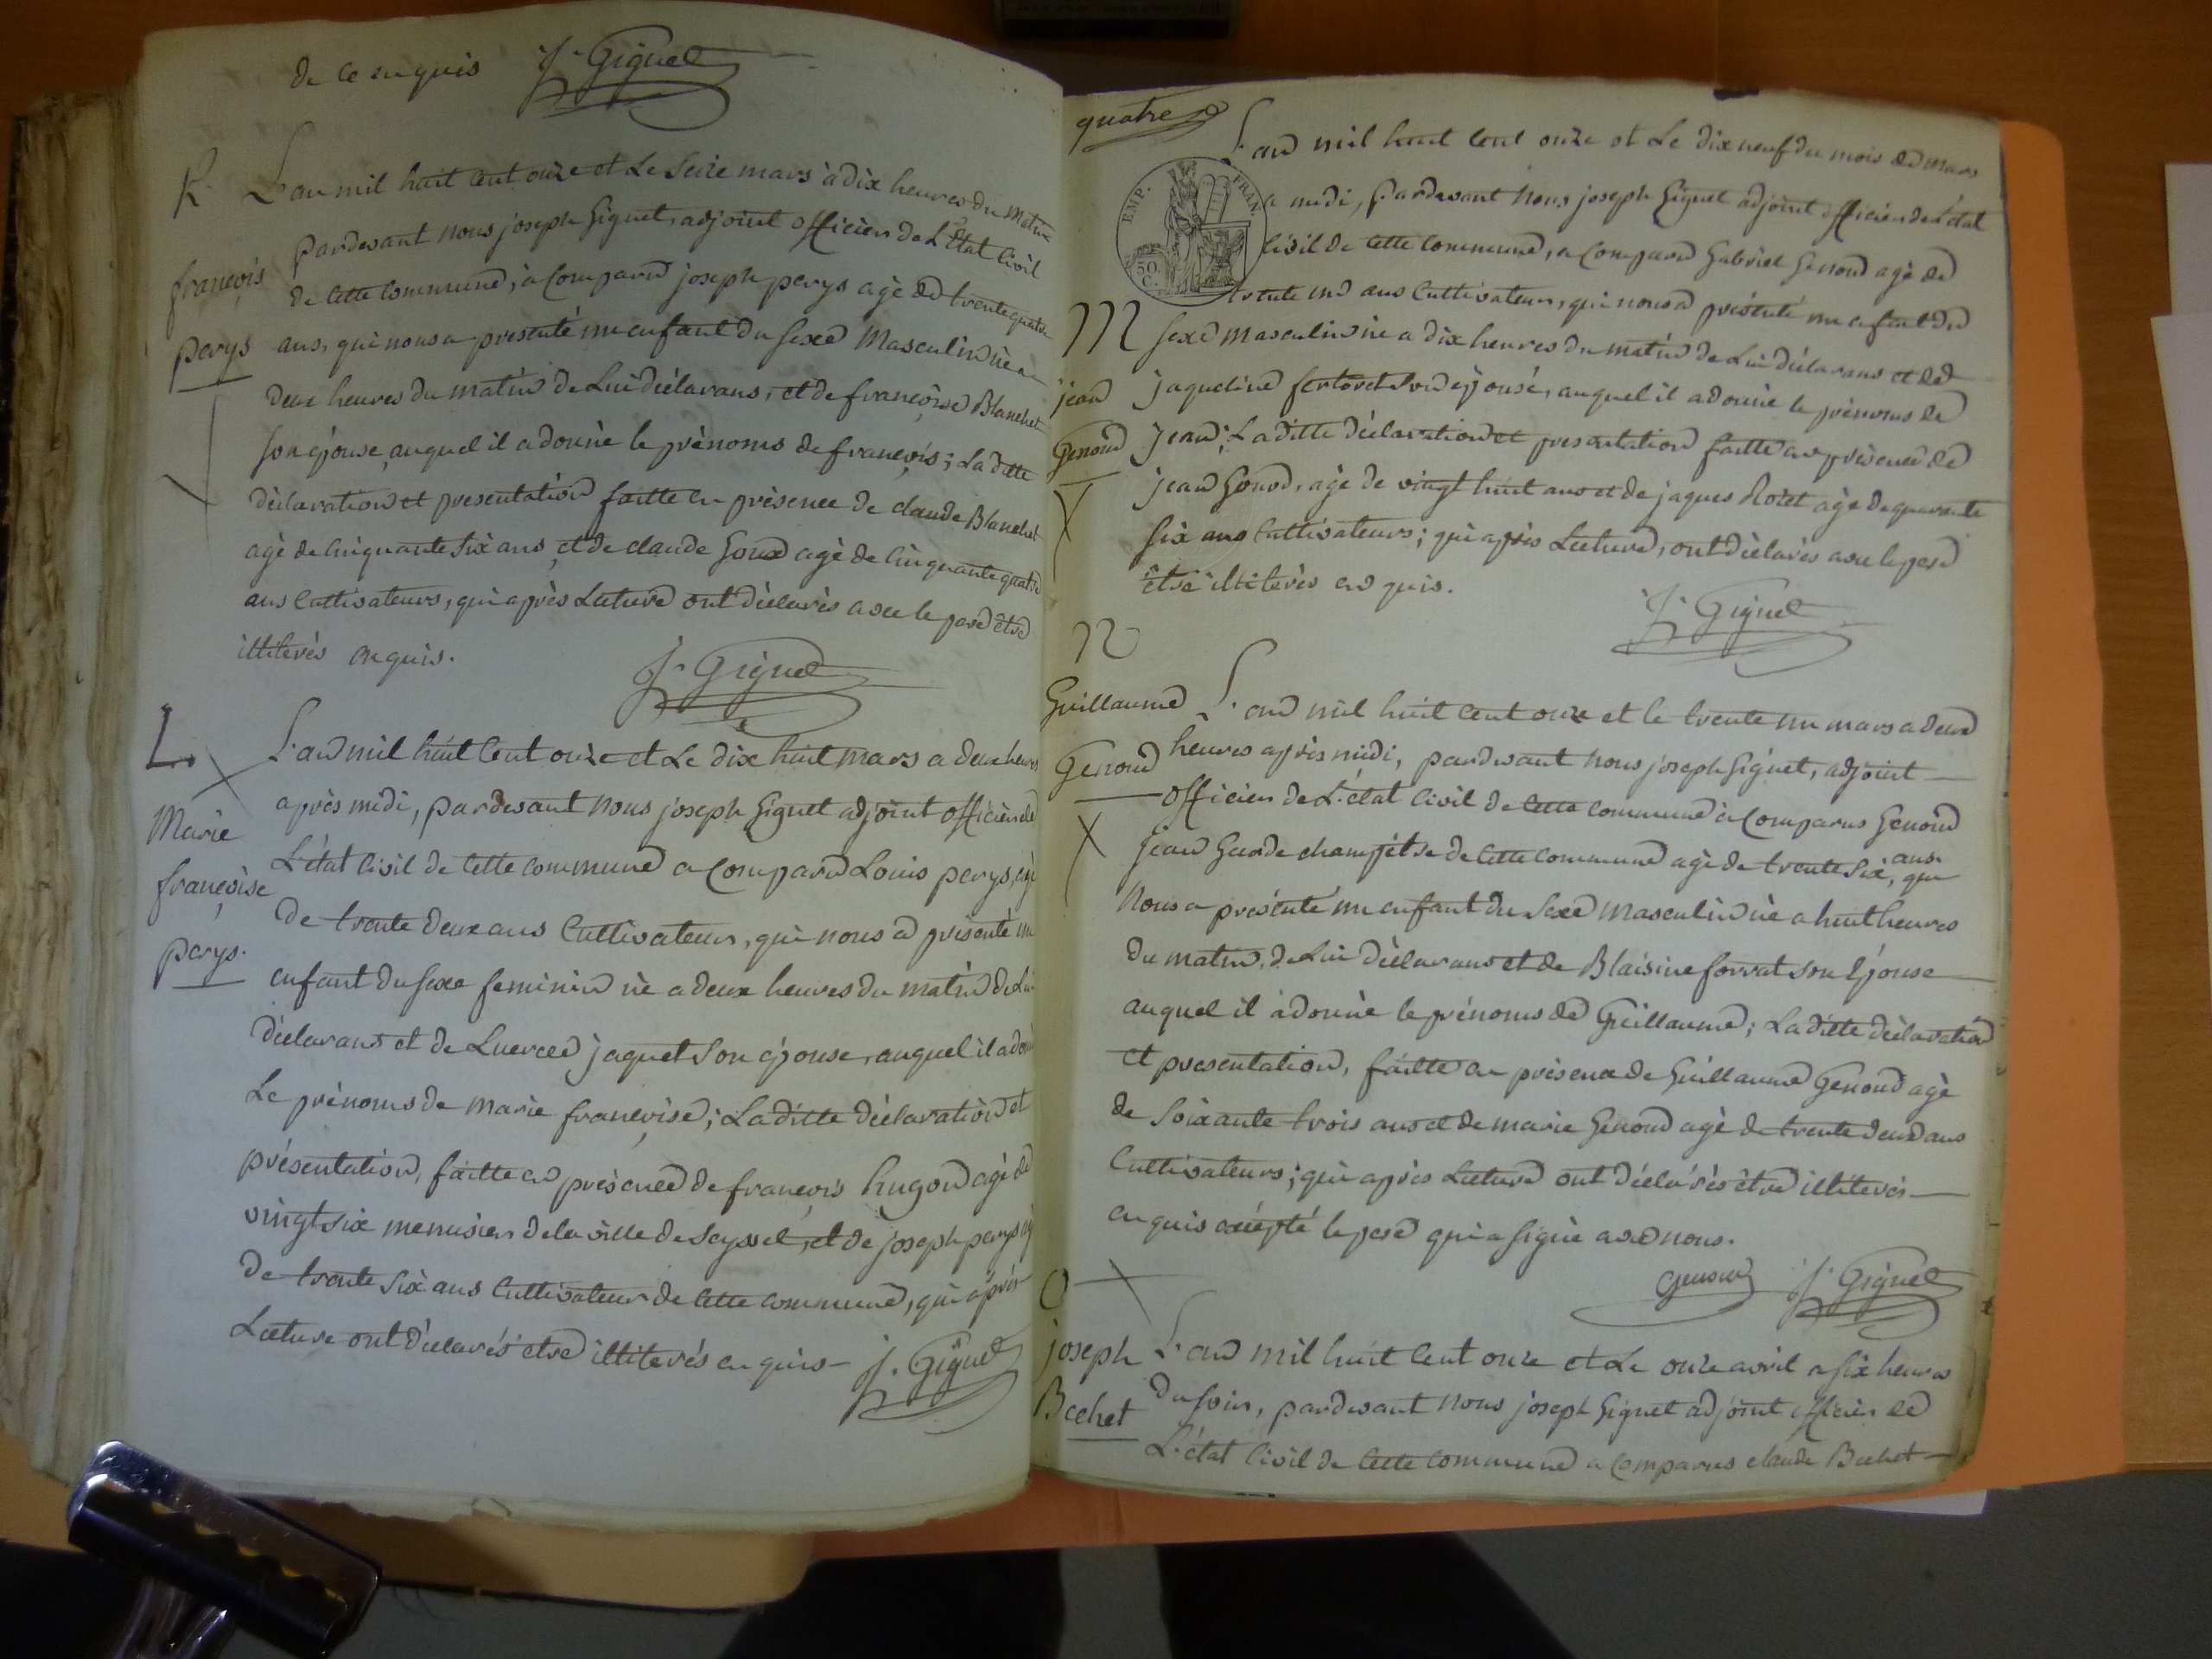 de ce enquis J. Giguet
K.
françois
perys
L'an mil huit cent onze et Le Seize mars à dix heures du matin
pardevant nous joseph Giguet, adjoint officier de L'état Civil
de cette commune, a comparu joseph perys agè de trente quatre
ans, qui nous a presenté un enfant du sexe Masculin nè a
deux heures du matin de Lui dèclarans, et de françoise Blanchet
son èpouse, auquel il a donnè le prènoms de françois; La ditte
dèclaration et presentation faitte en prèsence de claude Blanchet
agè de cinquante six ans, et de claude Goux agè de cinquante quatre
ans Cultivateurs, qui après Lecture ont dèclarès avec le pere être
illiterès enquis.
J. Giguet
L.
Marie
françoise
perys.
L'an mil huit Cent onze et Le dix huit mars a deux heures
après midi, pardevant nous joseph Giguet adjoint officier de
L'état Civil de cette commune a comparu Louis perys, agè
de trente deux ans Cultivateur, qui nous a prèsentè un
enfant du sexe feminin nè a deux heures du matin de Lui
dèclarans et de Luerce jaquet son èpouse, auquel il a donnè
Le prènoms de marie françoise; La ditte dèclaration et
présentation, faitte en prèsence de françois hugon agè de
vingt six menusier de la ville de Seyssel, et de joseph perys agè
de trente six ans Cultivateur de cette commune, qui après
Lecture ont dèclarés être illiterés enquis - J. Giguet
quatre
EMP. FRAN.
50. C.
M
jean
Genoud
L'an mil huit cent onze et Le dix neuf du mois de mars
a midi, pardevant nous joseph Giguet adjoint officier de L'état
Civil de cette commune, a comparu Gabriel Genoud agè de
trente un ans Cultivateur, qui nous a présenté un enfant du
sexe masculin nè a dix heures du matin de Lui dèclarans et de
jaqueline fertoret son èpouse, auquel il a donnè le prènoms de
jean; La ditte dèclaration et presentation faitte en prèsence de
jean Gonod, agè de vingt huit ans et de jaques Roset agè de quarante
six ans Cultivateurs; qui après Lecture, ont dèclarès avec le pere
être illiterès enquis.
J. Giguet
N
Guillaume
Genoud
L'an mil huit cent onze et le trente un mars a deux
heures après midi, pardevant nous joseph Giguet, adjoint
officier de L'état Civil de cette commune a comparus Genoud
jean Garde champètre de cette commune agè de trente six ans, qui
nous a présenté un enfant du sexe masculin nè a huit heures
du matin, de Lui dèclarans et de Blaisine forrat son Epouse
auquel il a donnè le prénoms de Guillaume; La ditte dèclaration
et presentation, faitte en prèsence de Guillaume Genoud agè
de soixante trois ans et de marie Genoud agè de trente deux ans
Cultivateurs; qui après Lecture ont dèclarès être illiterès
enquis excépté le pere qui a signè avec nous.
Genoud J. Giguet
O
joseph
Bochet
L'an mil huit Cent onze et Le onze avril a six heures
du soir, pardevant nous joseph Giguet adjoint officier de
L'état Civil de cette commune a comparus claude Bochet